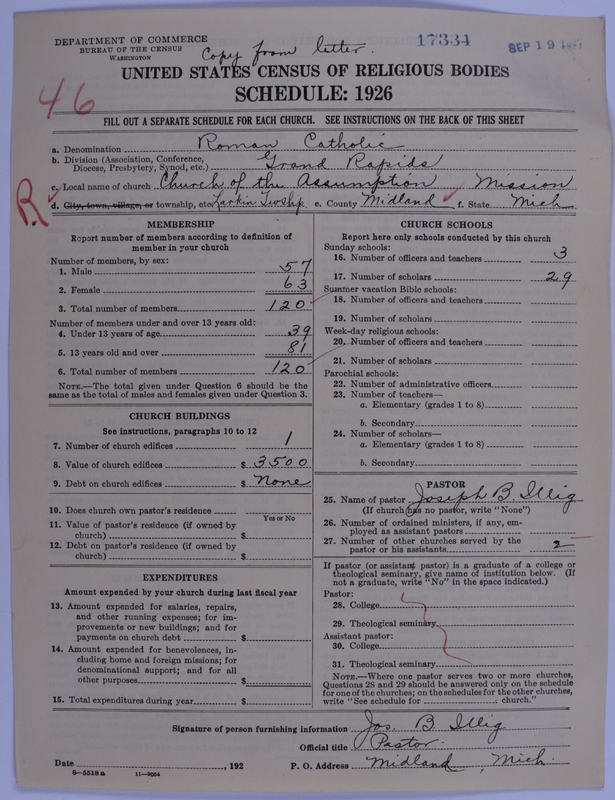 DEPARTMENT OF COMMERCE
BUREAU OF THE CENSUS
WASHINGTON
Copy from letter.
17334
SEP 19
UNITED STATES CENSUS OF RELIGIOUS BODIES
SCHEDULE: 1926
46
FILL OUT A SEPARATE SCHEDULE FOR EACH CHURCH. SEE INSTRUCTIONS ON THE BACK OF THIS SHEET
a. Denomination Roman Catholic
b. Division (Association, Conference, Diocese, Presbytery, Synod, etc.) Grand Rapids
c. Local name of church Church of the Assumption Mission
R.
d. City, town, village, or township, etc. Larkin Twshp. e. County Midland f. State Mich
MEMBERSHIP
Report number of members according to definition of
member in your church
Number of members, by sex:
1. Male 57
2. Female 63
3. Total number of members 120
Number of members under and over 13 years old:
4. Under 13 years of age 39
5. 13 years old and over 81
6. Total number of members 120
NOTE.—The total given under Question 6 should be the
same as the total of males and females given under Question 3.
CHURCH BUILDINGS
See instructions, paragraphs 10 to 12
7. Number of church edifices 1
8. Value of church edifices $ 3500
9. Debt on church edifices $ None
10. Does church own pastor's residence
Yes or No
11. Value of pastor's residence (if owned by
church) $
12. Debt on pastor's residence (if owned by
church) $
EXPENDITURES
Amount expended by your church during last fiscal year
13. Amount expended for salaries, repairs,
and other running expenses; for im-
provements or new buildings; and for
payments on church debt $
14. Amount expended for benevolences, in-
cluding home and foreign missions; for
denominational support; and for all
other purposes $
15. Total expenditures during year $
CHURCH SCHOOLS
Report here only schools conducted by this church
Sunday schools:
16. Number of officers and teachers 3
17. Number of scholars 29
Summer vacation Bible schools:
18. Number of officers and teachers
19. Number of scholars
Week-day religious schools:
20. Number of officers and teachers
21. Number of scholars
Parochial schools:
22. Number of administrative officers
23. Number of teachers—
a. Elementary (grades 1 to 8)
b. Secondary
24. Number of scholars—
a. Elementary (grades 1 to 8)
b. Secondary
PASTOR
25. Name of pastor Joseph B. Illig
(If church has no pastor, write "None")
26. Number of ordained ministers, if any, em-
ployed as assistant pastors
27. Number of other churches served by the
pastor or his assistants 2
If pastor (or assistant pastor) is a graduate of a college or
theological seminary, give name of institution below. (If
not a graduate, write "No" in the space indicated.)
Pastor:
28. College
29. Theological seminary
Assistant pastor:
30. College
31. Theological seminary
NOTE.—Where one pastor serves two or more churches,
Questions 28 and 29 should be answered only on the schedule
for one of the churches; on the schedules for the other churches,
write "See schedule for church."
Signature of person furnishing information Jos. B. Illig
Official title Pastor.
Date , 192 P. O. Address Midland, Mich.
8—5518 a 11—9064